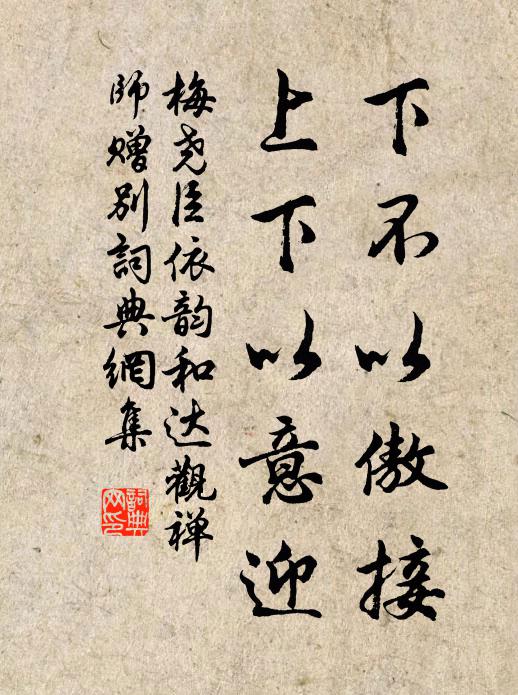 下不以傲接
上下以意迎
梅尧臣依韵和达觀禅
師赠别詞典網集
詞典
网印